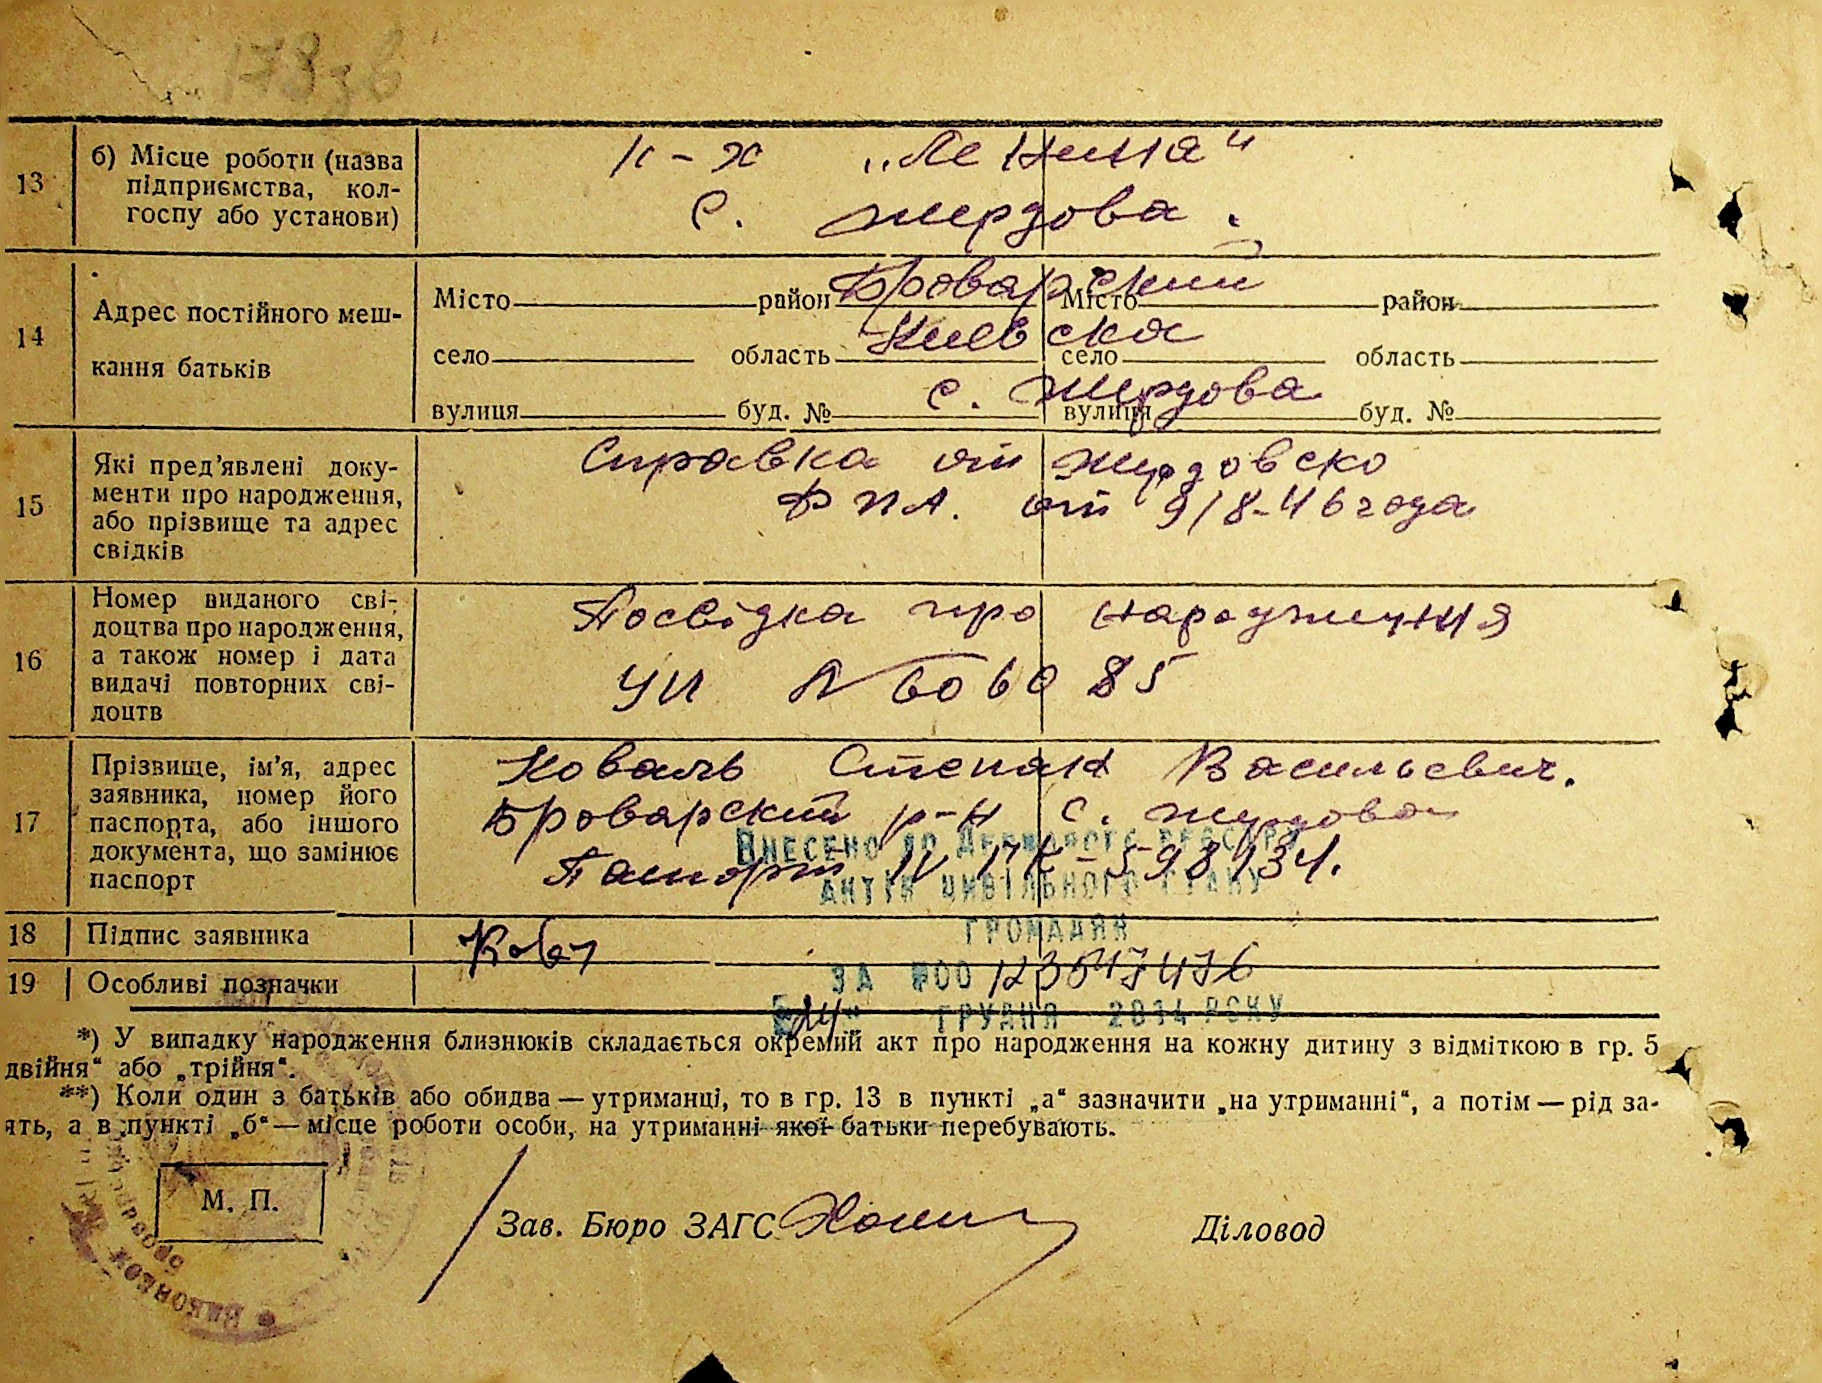 13
б) Місце роботи (назва
підприємства, кол-
госпу або установи)
к-х „Ленина"
с. Жердова.
14
Адрес постійного меш-
кання батьків
Місто район Броварский Місто район
село область Киевска село область
вулиця буд. № с. Жердова вулиця буд. №
15
Які пред'явлені доку-
менти про народження,
або прізвище та адрес
свідків
Справка от Жердовско
от 9/8-46 года
16
Номер виданого сві-
доцтва про народження,
а також номер і дата
видачі повторних сві-
доцтв
Посвідка про народження
УИ №606085
17
Прізвище, ім'я, адрес
заявника, номер його
паспорта, або іншого
документа, що замінює
паспорт
Коваль Степан Васильевич.
Броварский р-н с. Жердова
Паспорт IV 598134.
Внесено до Державного реєстру
актів цивільного стану
громадян
за №00123547476
"24" грудня 2014 року
18
Підпис заявника
19
Особливі позначки
*) У випадку народження близнюків складається окремий акт про народження на кожну дитину з відміткою в гр. 5
двійня" або „трійня".
**) Коли один з батьків або обидва — утриманці, то в гр. 13 в пункті „а" зазначити „на утриманні", а потім — рід за-
ять, а в пункті „б" — місце роботи особи, на утриманні якої батьки перебувають.
М. П.
Зав. Бюро ЗАГС
Діловод